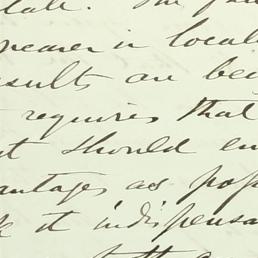 nearer in local
esults are be
requires that
should en
antages as poss
it indispensa